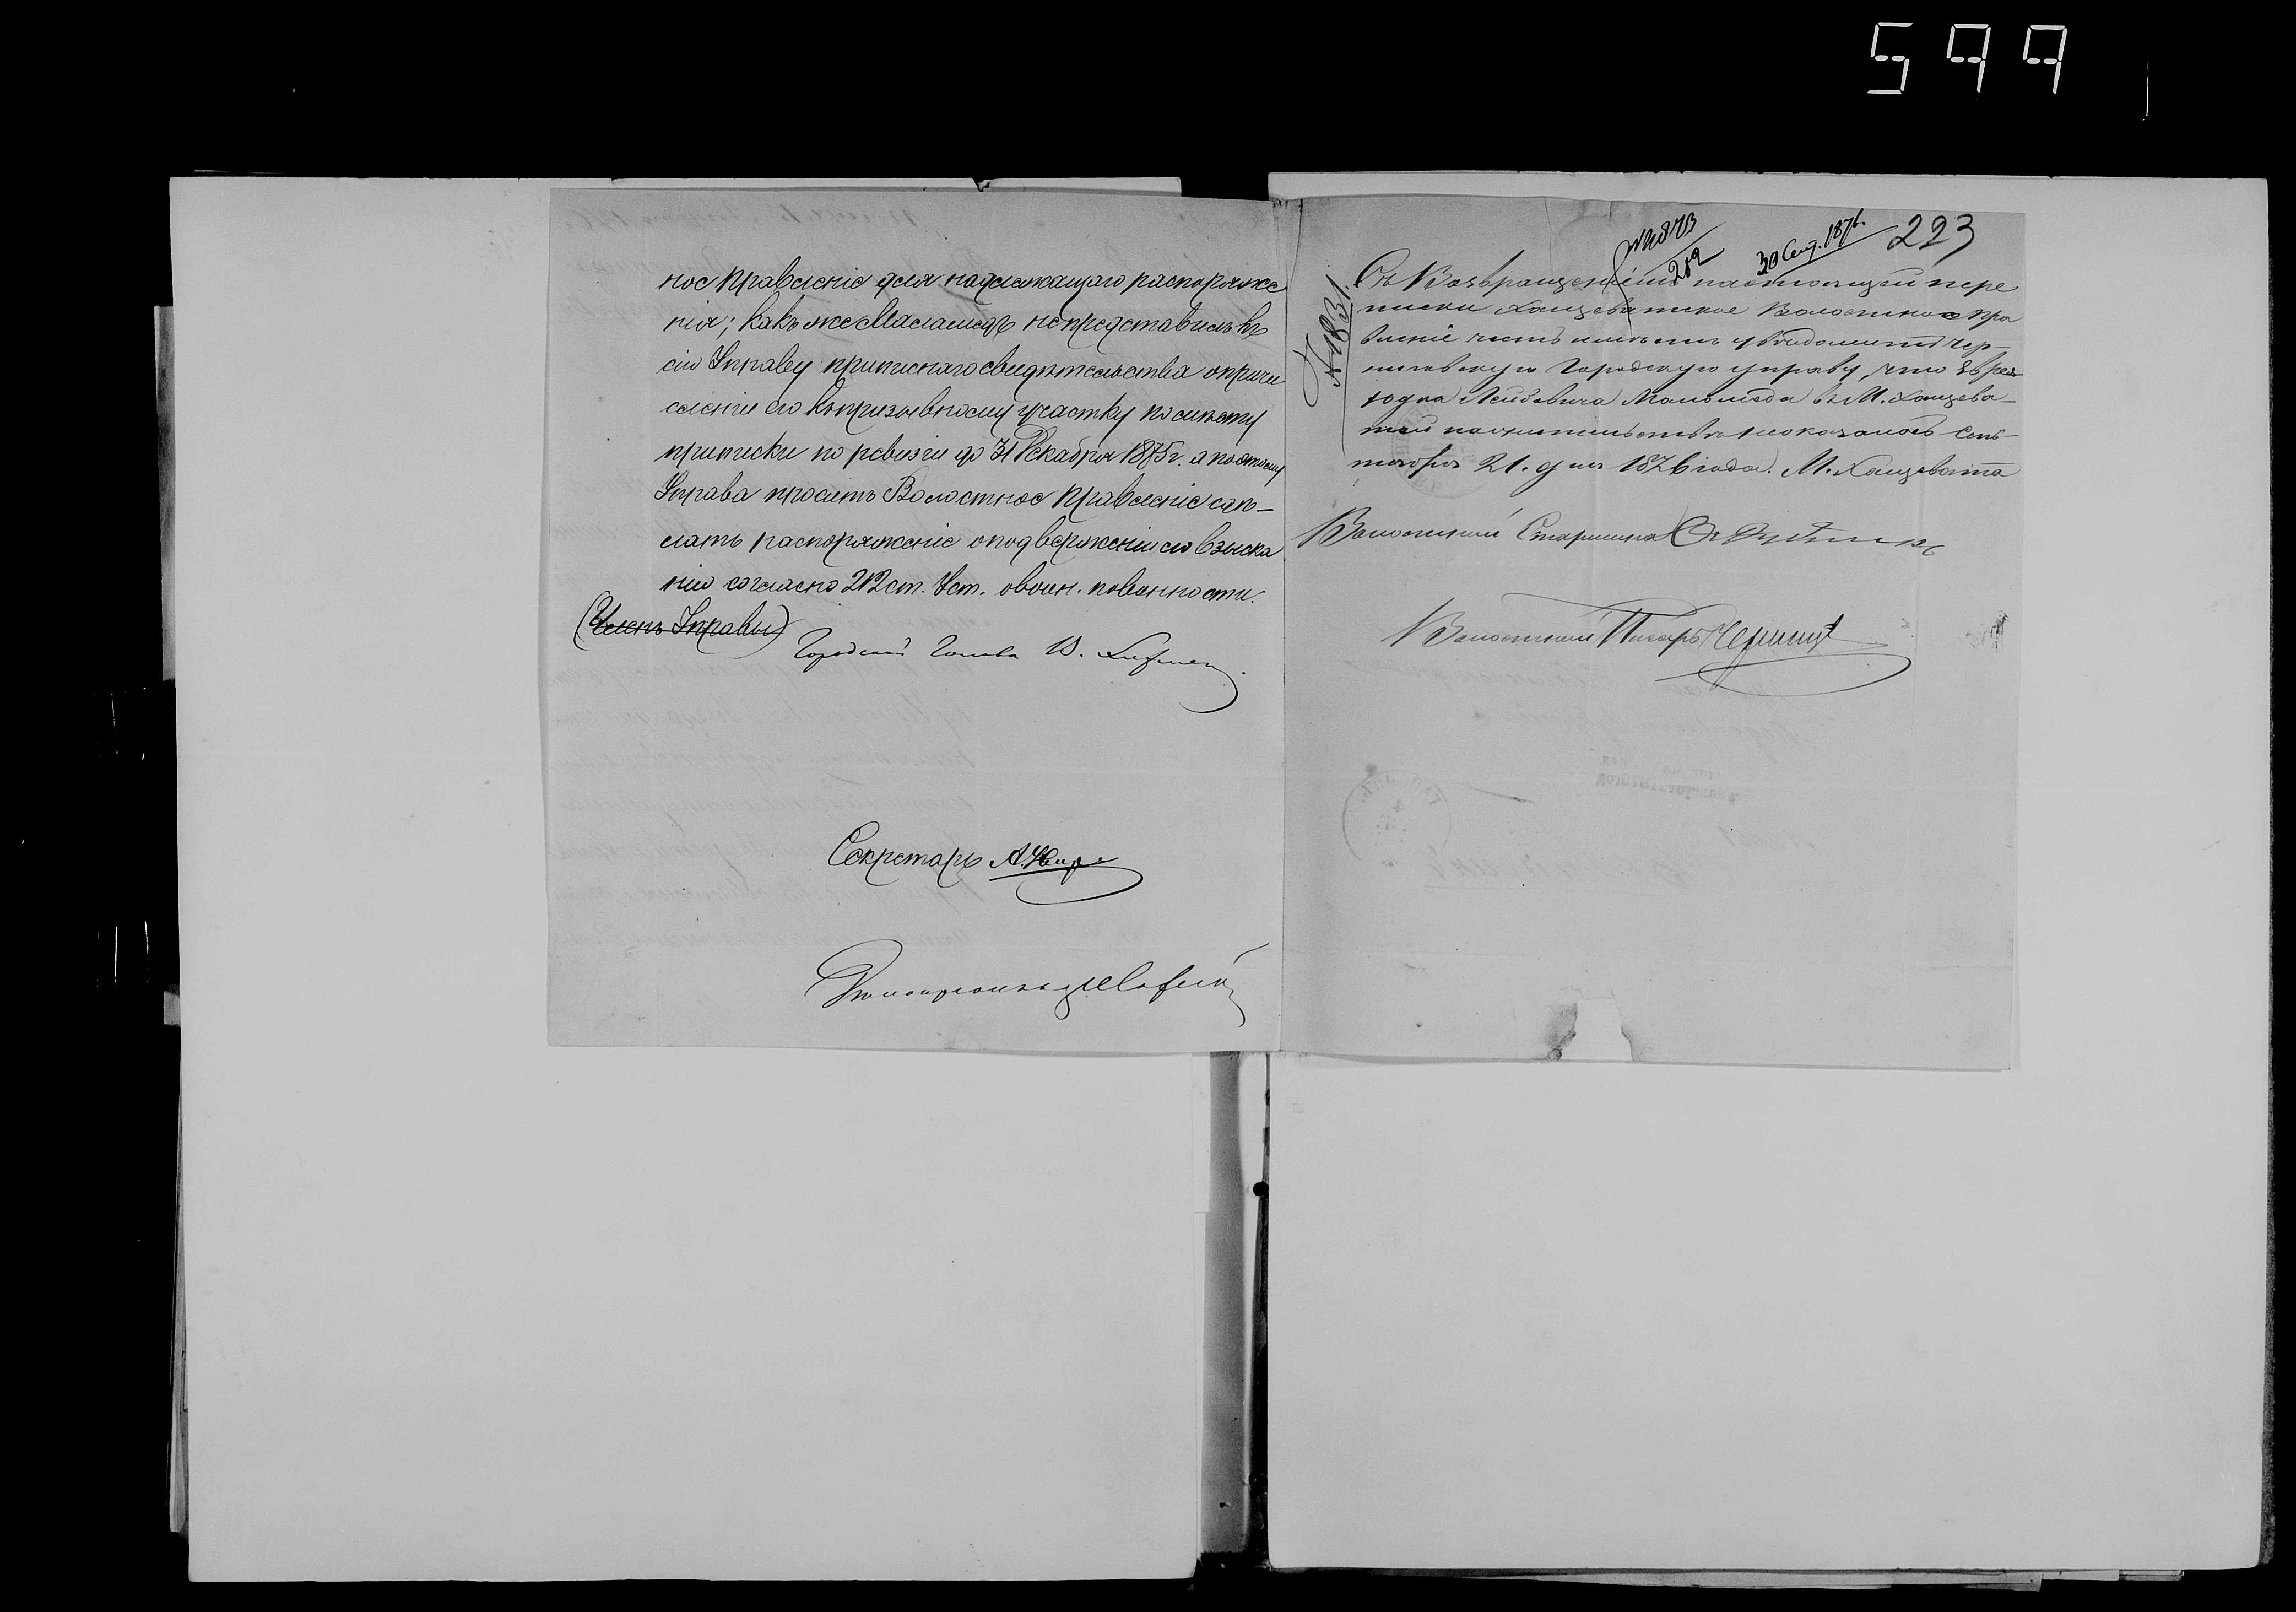 599
ное Правленіе для надлежащаго распоряже
нія; какъ же Маламедъ непредставилъ въ
сію Управу приписнаго свидѣтельства о причи
сленіи его къ призывному участку по мѣсту
приписки по ревизіи до 31 Декабря 1875 г. а поэтому
Управа проситъ Волостное Правленіе сдѣ-
лать распоряженіе о подверженіи его взыска
нію согласно 212 ст. Уст. о воин. повинности.
(Членъ Управы)
Городской Голова В.
Секретарь А.
223
30 Сен. 1876
212
Съ Возвращеніемъ настоящей пере
писки Хащеватское Волостное Пра
вленіе честь имѣетъ увѣдомить Чер-
ниговскую Городскую управу, что Еврея
Юдка Лейбовича Маламеда в М. Хащева-
той на жительствѣ не оказалось Сен-
тября 21. дня 1876 года. М. Хащевата
Волостный Старшина
Волостный Писарь